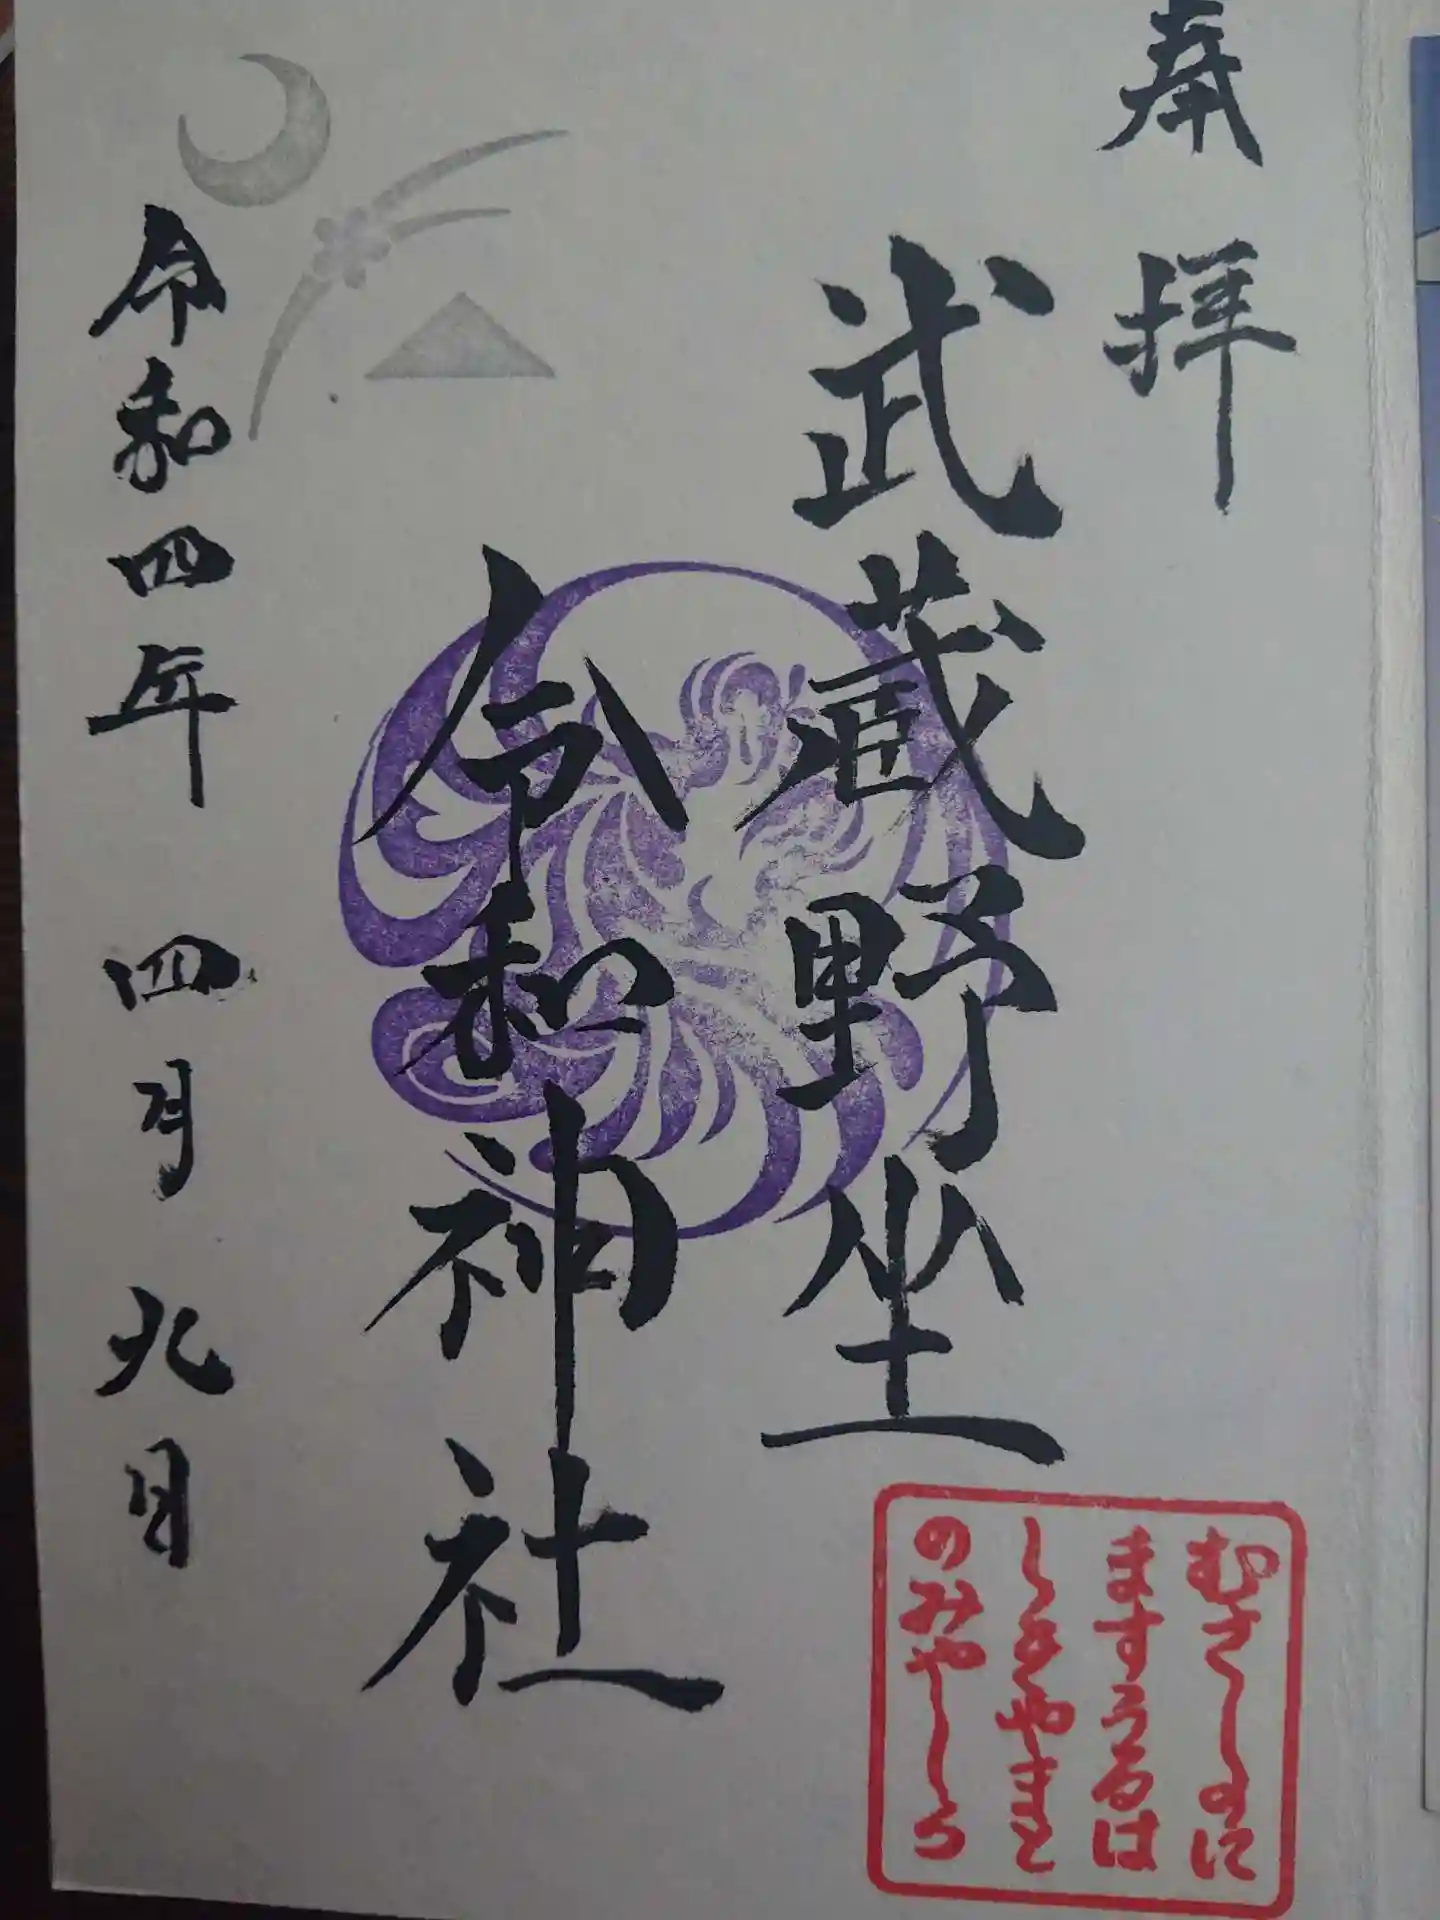 奉拝
武蔵野坐
令和神社
令和四年 四月九日
むさしのに
ますうるは
しきやまと
のみやしろ